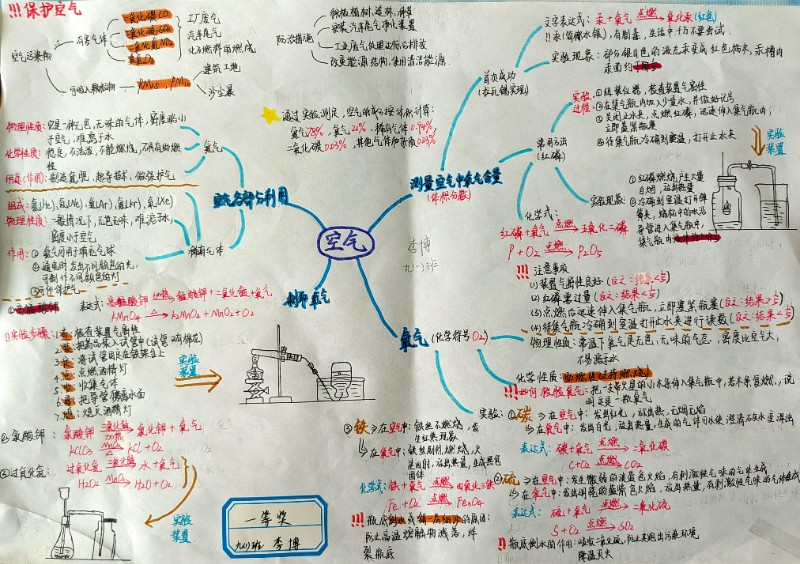 !!! 保护空气
空气污染物
有害气体
一氧化碳CO
二氧化硫SO₂
二氧化氮NO₂
臭氧O₃
工厂废气
汽车尾气
化石燃料的燃烧
可吸入颗粒物
PM2.5, PM10
建筑工地
沙尘暴
防治措施
安装汽车尾气净化装置
工业废气处理达标后排放
改变能源结构,使用清洁能源
通过实验测定,空气的成分按体积计算:
氮气78%, 氧气21%, 稀有气体0.94%
二氧化碳0.03%, 其他气体和杂质0.03%
空气
李博
九(2)班
空气各部分利用
氮气
物理性质:
化学性质:
用途(作用): 制造氮肥,超导材料,做保护气
稀有气体
组成: 氦(He), 氖(Ne), 氩(Ar), 氪(Kr), 氙(Xe)
物理性质: 一般情况下,无色无味,难溶于水,
密度小于空气
作用: ① 氦气可用于填充气球
② 通电时发出不同颜色的光,
可制作不同颜色的灯
③ 可作保护气
测量空气中氧气含量
(体积分数)
首次成功
(拉瓦锡实现)
文字表达式: 汞+氧气 点燃 氧化汞(红色)
实验现象: 部分银白色的液态汞变成红色粉末,
常用方法
(红磷)
实验过程:
① 连接仪器,检查装置气密性
② 在集气瓶内加入少量水,并做好记号
③ 关闭止水夹,点燃红磷,迅速伸入集气瓶内,
立即塞紧瓶塞
④ 待集气瓶冷却到室温,打开止水夹
实验装置
实验现象:
① 红磷燃烧,产生大量
白烟,放出热量
② 冷却到室温打开弹
簧夹,烧杯中的水沿
导管进入集气瓶中,
化学式:
红磷+氧气 点燃 五氧化二磷
P + O₂ 点燃 P₂O₅
!!! 注意事项
(1) 装置气密性良好 (反之:结果<⅕)
(2) 红磷要过量 (反之:结果<⅕)
(3) 点燃后迅速伸入集气瓶,立即塞紧瓶塞 (反之:结果>⅕)
(4) 待集气瓶冷却到室温打开止水夹进行读数 (反之:结果<⅕)
制取氧气
① 高锰酸钾
表达式: 高锰酸钾 加热 锰酸钾+二氧化锰+氧气
KMnO₄ △ K₂MnO₄ + MnO₂ + O₂
!! 实验步骤:
1. 查: 检查装置气密性
2. 装: 把药品装入试管中(试管口有棉花)
3. 定: 将试管固定在铁架台上
4. 点: 点燃酒精灯
5. 收: 收集气体
6. 离: 把导管撤离水面
7. 熄: 熄灭酒精灯
实验装置
② 氯酸钾:
氯酸钾 二氧化锰 加热 氯化钾+氧气
KClO₃ MnO₂ △ KCl + O₂
③ 过氧化氢:
过氧化氢 二氧化锰 水+氧气
H₂O₂ MnO₂ H₂O + O₂
实验装置
氧气 (化学符号O₂)
物理性质: 常温下氧气是无色,无味的气态,密度比空气大,
不易溶于水
化学性质: 助燃性(支持燃烧)
!!! 如何检验氧气: 把一支带火星的小木条伸入集气瓶中,若木条复燃,说
明这是一瓶氧气
实验:
① 碳 在空气中: 发出红光,放出热,无烟无焰
在氧气中: 发出白光,放出热量,生成的气体可以使澄清石灰水变浑浊
表达式: 碳+氧气 点燃 二氧化碳
C + O₂ 点燃 CO₂
② 硫 在空气中: 发生微弱的淡蓝色火焰,有刺激性气味的气体生成
在氧气中: 发出明亮的蓝紫色火焰,放出热量,有刺激性气味的气体生成
表达式: 硫+氧气 点燃 二氧化硫
S + O₂ 点燃 SO₂
!! 瓶底倒水的作用: 吸收二氧化硫,防止其逸出污染环境
③ 铁 在空气中: 铁丝不燃烧,
生红热现象
在氧气中: 铁丝剧烈燃烧,火
星四射,放出热量,生成黑色
固体
化学式: 铁+氧气 点燃 四氧化三铁
Fe + O₂ 点燃 Fe₃O₄
!!! 瓶底倒水或铺一层细沙的原因:
防止高温熔融物溅落,炸
裂瓶底
一等奖
九(2)班 李博